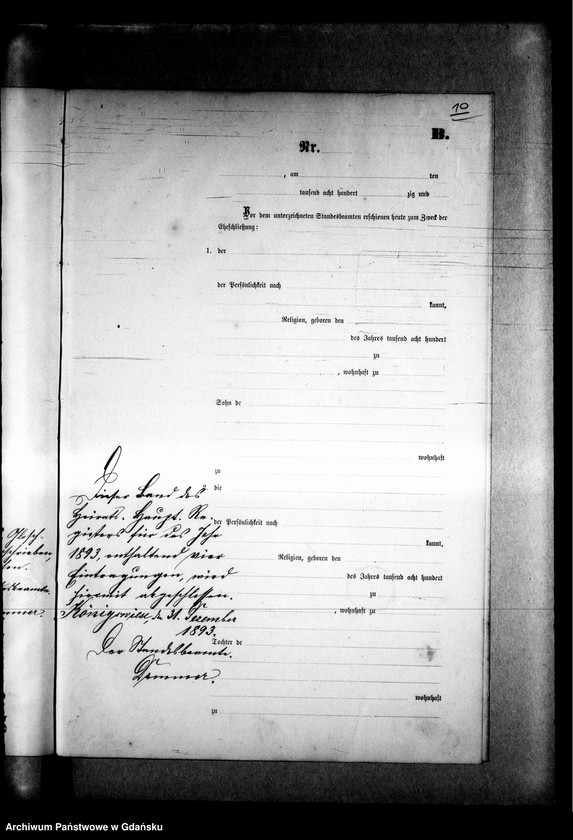 10
B.
Nr.
, am ten
tausend acht hundert zig und
Vor dem unterzeichneten Standesbeamten erschienen heute zum Zweck der
Eheschließung:
1. der
der Persönlichkeit nach
kannt,
Religion, geboren den
des Jahres tausend acht hundert
zu
, wohnhaft zu
Sohn de
wohnhaft
zu
2. die
der Persönlichkeit nach
kannt,
Religion, geboren den
des Jahres tausend acht hundert
zu
, wohnhaft zu
Tochter de
wohnhaft
zu
Dieser Band des
Heirats-Haupt-Re-
gisters für das Jahr
1893, enthaltend vier
Eintragungen, wird
hiermit abgeschlossen.
Königswiese, den 31. Dezember
1893.
Der Standesbeamte.
Archiwum Państwowe w Gdańsku